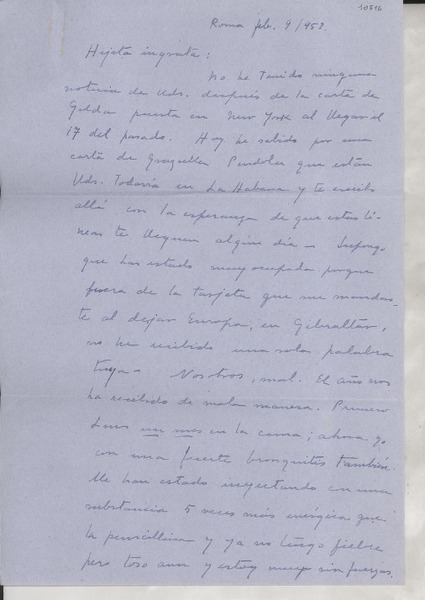 10516
Roma feb. 9/953.
Hijita ingrata:
No he tenido ninguna
noticia de Uds. después de la carta de
Gilda puesta en New York al llegar el
17 del pasado. Hoy he sabido por una
carta de Graziella Pendola que están
Uds. todavía en La Habana y te escribo
allá con la esperanza de que estas lí-
neas te lleguen algún día — Supongo
que has estado muy ocupada porque
fuera de la tarjeta que me mandas-
te al dejar Europa, en Gibraltar,
no he recibido una sola palabra
tuya — Nosotros, mal. El año nos
ha recibido de mala manera. Primero
Luis un mes en la cama; ahora yo
con una fuerte bronquitis también.
Me han estado inyectando con una
substancia 5 veces más enérgica que
la penicilina y ya no tengo fiebre
pero toso aun y estoy muy sin fuerzas.